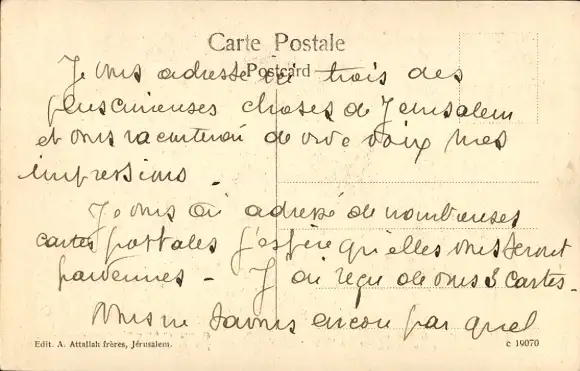 Carte Postale
Postcard
Je vous adresse ici trois des
plus curieuses choses de Jerusalem
et vous raconterai de vive voix mes
impressions.
Je vous ai adressé de nombreuses
cartes postales j'espère qu'elles vous seront
parvenues - J'ai reçu de vous 3 cartes -
Nous ne savons encore par quel
Edit. A. Attallah frères, Jérusalem.
c 19070